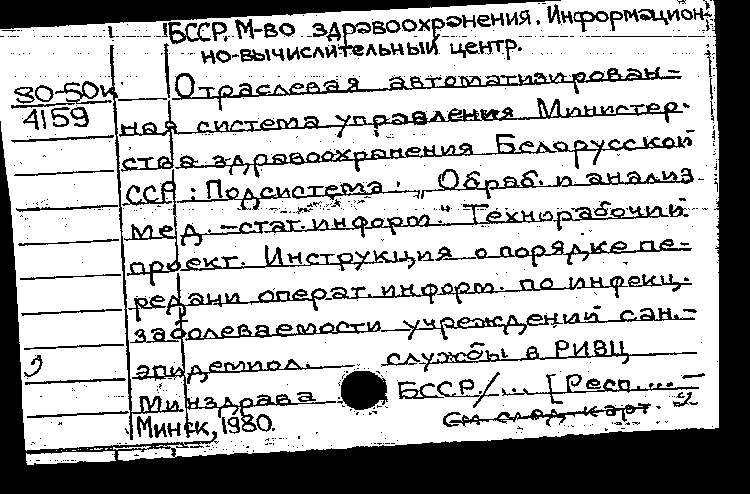 БССР. М-во здравоохранения. Информацион-
но-вычислительный центр.
80-50к
4159
Отраслевая автоматизирован-
ная система управления Министер-
ства здравоохранения Белорусской
ССР : Подсистема : „Обраб. и анализ
мед.-стат. информ." Технорабочий
проект. Инструкция о порядке пе-
редачи операт. информ. по инфекц.
заболеваемости учреждений сан.-
эпидемиол. службы в РИВЦ
Минздрава БССР/... [Респ....-
Минск, 1980.
См след. карт. 2